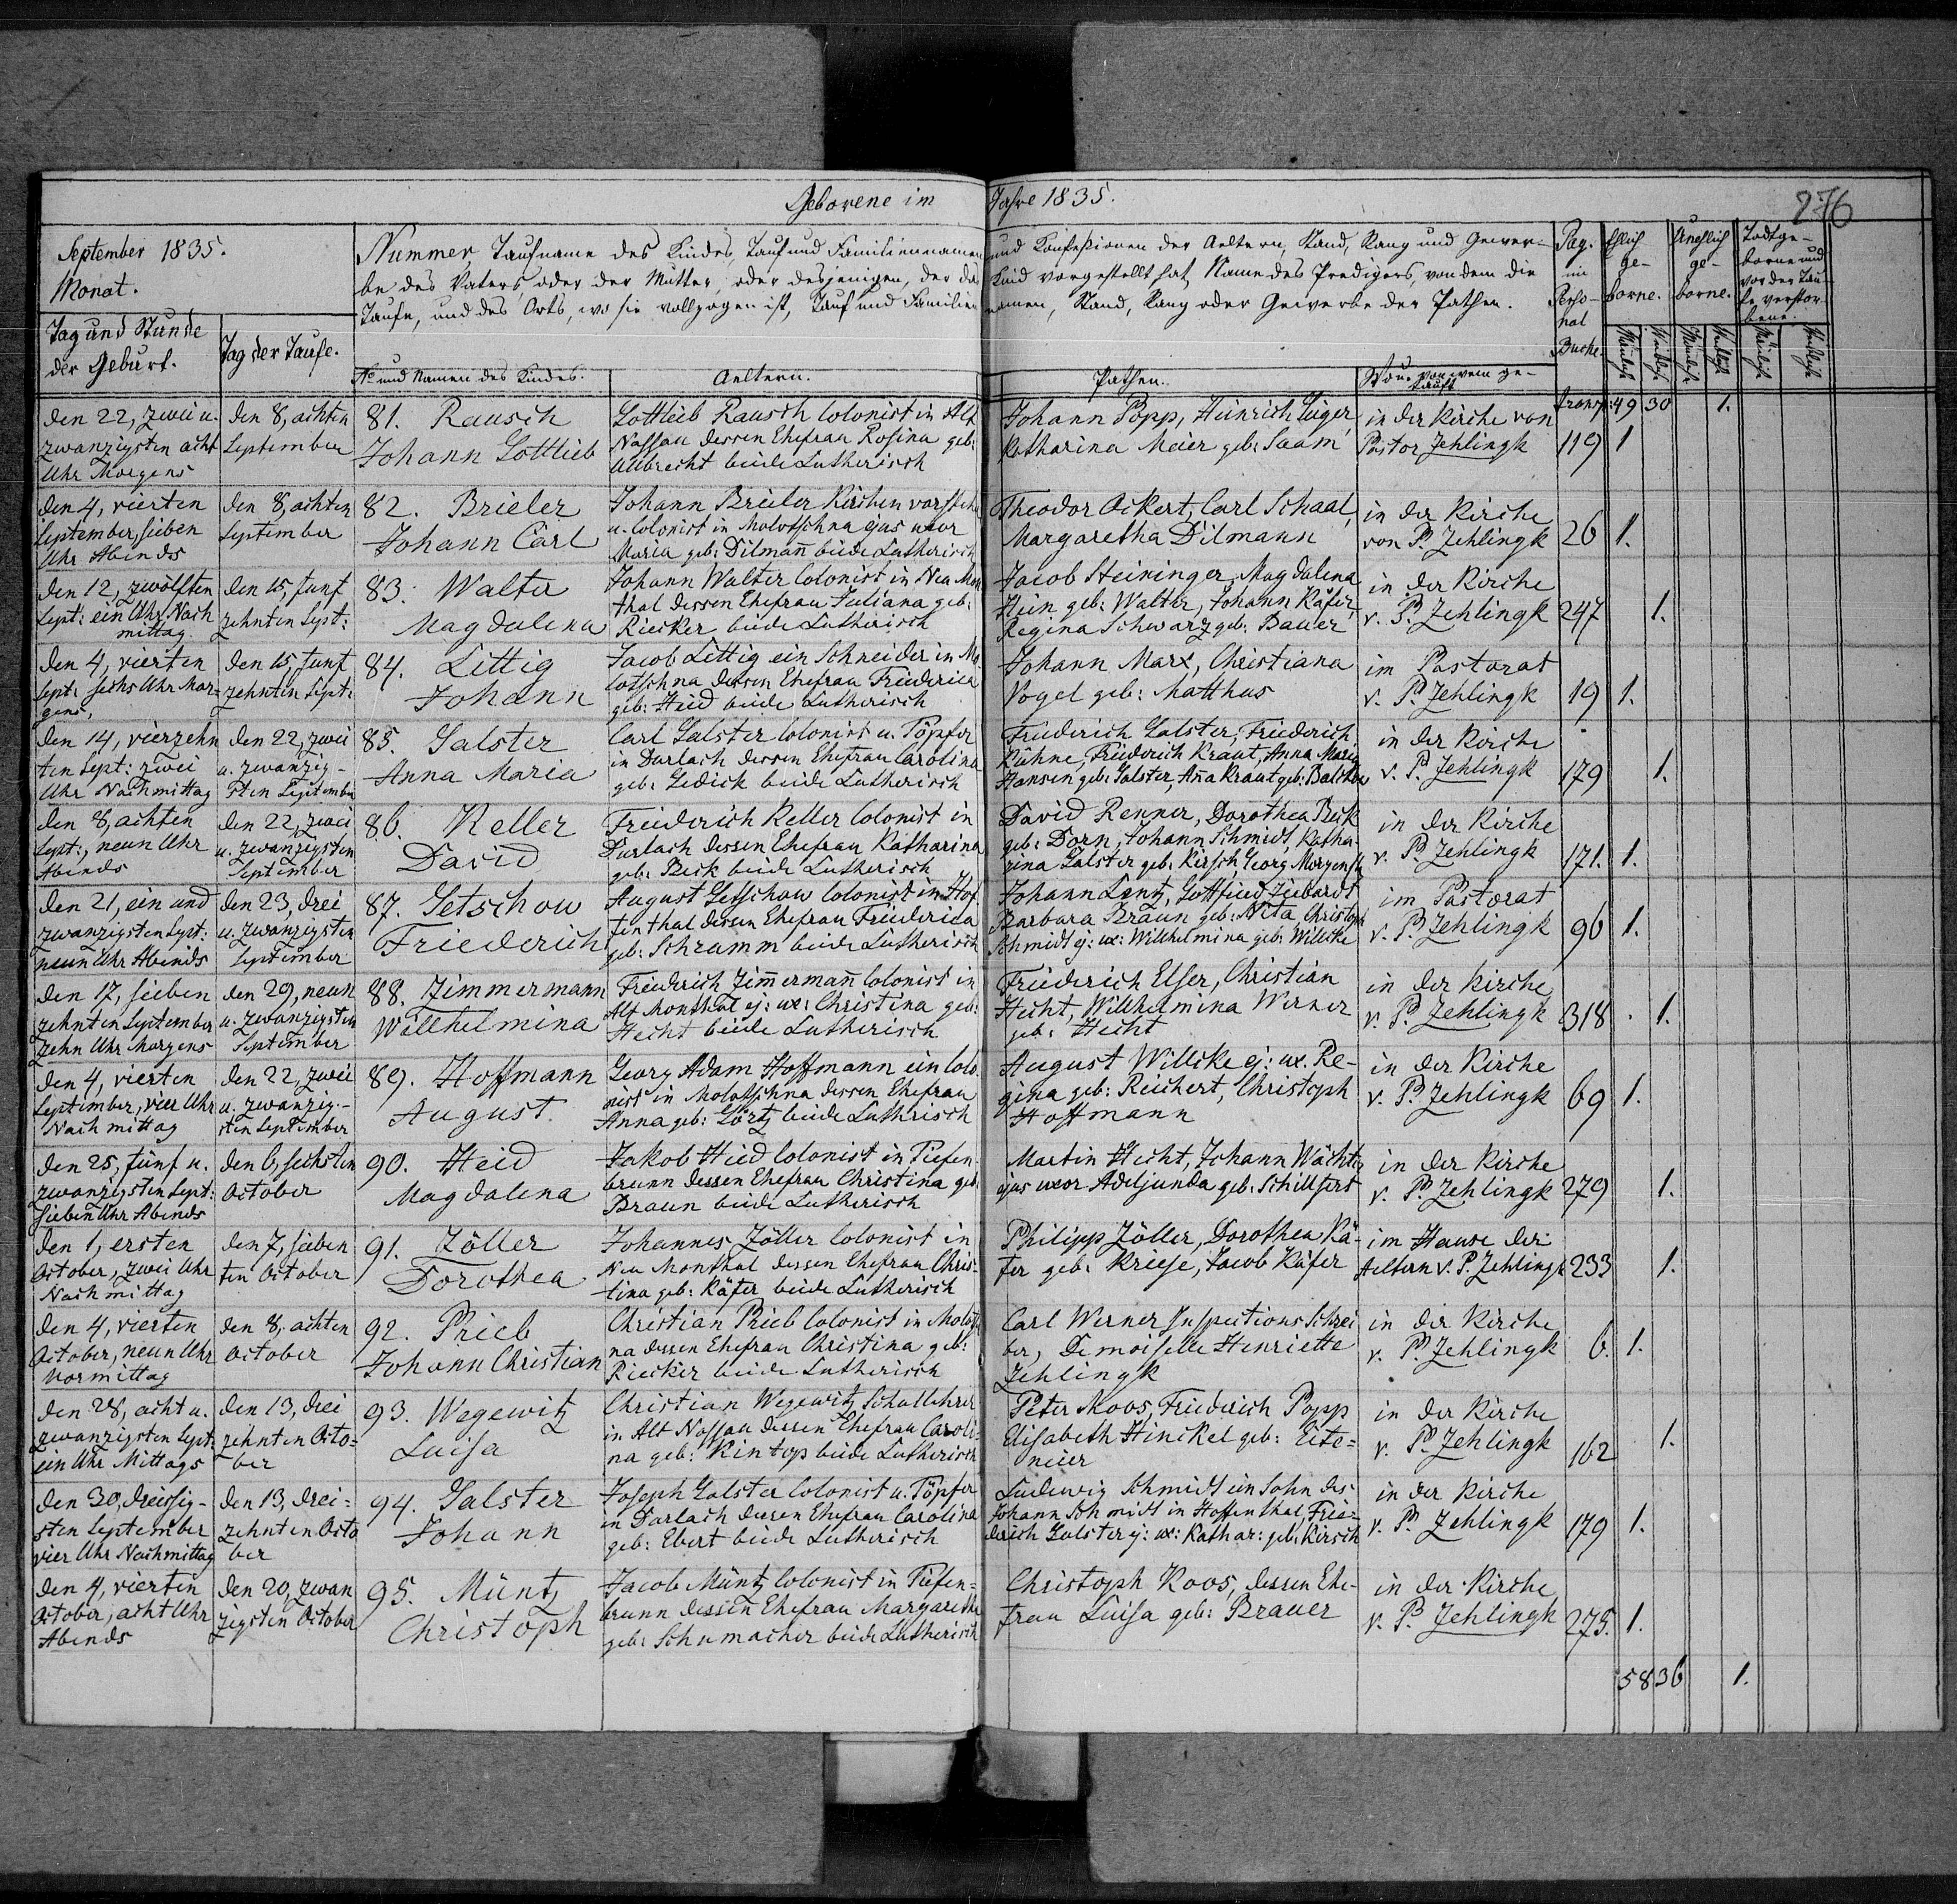 Geborene im Jahre 1835.
276
September 1835.
Monat.
Tag und Stunde
der Geburt.
Tag der Taufe.
Nummer Taufname des Kindes, Tauf und Familiennamen und Confessionen der Aeltern, Stand, Rang und Gewer-
be des Vaters oder der Mutter, oder desjenigen, der das Kind vorgestellt hat, Name des Predigers, von dem die
Taufe, und des Orts, wo sie vollzogen ist, Tauf und Familiennamen, Stand, Rang oder Gewerbe der Pathen.
No und Namen des Kindes.
Aeltern.
Pathen.
Wo u. von wem ge-
tauft
Pag.
im
Perso-
nal
Buche.
Ehlich
ge-
borne.
Unehlich
ge-
borne.
Todtge-
borne und
vor der Tau-
fe verstor-
bene.
transp: 49 30 1.
den 22, zwei u.
zwanzigsten acht
Uhr Morgens
den 8, achten
September
81. Rausch
Johann Gottlieb
Gottlieb Rausch Colonist in Alt
Nassau dessen Ehefrau Rosina geb:
Ullbrecht beide Lutherisch
Johann Popp, Heinrich
Katharina Meier geb: Saam
in der Kirche von
Pastor Zehlingk
119 1
den 4, vierten
September, sieben
Uhr Abends
den 8, achten
September
82. Brieler
Johann Carl
Johann Brieler Kirchen vorsteher
u. Colonist in Molotschna ejus uxor
Maria geb: Dilmann beide Lutherisch
Theodor Ockert, Carl Schaal,
Margaretha Dilmann
in der Kirche
von P. Zehlingk
26 1.
den 12, zwölften
Sept: ein Uhr Nach
mittag
den 15, funf
zehnten Sept:
83. Walter
Magdalena
Johann Walter Colonist in Neu Mon
thal dessen Ehefrau Juliana geb:
Riecker beide Lutherisch
Jacob Steininger, Magdalena
Hein geb: Walter, Johann Käfer,
Regina Schwarz geb: Bauer
in der Kirche
v. P. Zehlingk
247 1.
den 4, vierten
Sept: sechs Uhr Mor-
gens,
den 15, funf
zehnten Sept:
84. Littig
Johann
Jacob Littig ein Schneider in Mo
lotschna dessen Ehefrau Friederica
geb: Heid beide Lutherisch
Johann Marx, Christiana
Vogel geb: Matthus
im Pastorat
v. P. Zehlingk
19 1.
den 14, vierzehn
ten Sept: zwei
Uhr Nachmittag
den 22, zwei
u. zwanzig-
sten September
85. Galster
Anna Maria
Carl Galster Colonist u. Töpfer
in Durlach dessen Ehefrau Carolina
geb: Gedick beide Lutherisch
Friederich Galster, Friederich
Kühne, Friederich Kraut, Anna Maria
Hansen geb: Galster, Aña Kraut geb:
in der Kirche
v. P. Zehlingk
179 1.
den 8, achten
Sept:, neun Uhr
Abends
den 22, zwei
u. zwanzigsten
September
86. Keller
David
Friederich Keller Colonist in
Durlach dessen Ehefrau Katharina
geb: Beck beide Lutherisch
David Renner, Dorothea Beck
geb: Dorn, Johann Schmidt, Katha-
rina Galster geb: Kirsch, Georg
in der Kirche
v. P. Zehlingk
171. 1.
den 21, ein und
zwanzigsten Sept:
neun Uhr Abends
den 23, drei
u. zwanzigsten
September
87. Getschow
Friederich
August Getschow Colonist in Hof
fenthal dessen Ehefrau Friederica
geb: Schramm beide Lutherisch
Johann Lentz, Gottfried Ziebardt
Barbara Braun geb: Nita, Christoph
Schmidt ej: ux: Willhelmina geb: Willcke
im Pastorat
v. P. Zehlingk
96 1.
den 17, sieben
zehnten September
zehn Uhr Morgens
den 29, neun
u. zwanzigsten
September
88. Zimmermann
Willhelmina
Friederich Zimermañ Colonist in
Alt Monthal ej: ux: Christina geb:
Hecht beide Lutherisch
Friederich Elser, Christian
Hecht, Willhelmina Werner
geb: Hecht
in der Kirche
v. P. Zehlingk
318 1.
den 4, vierten
September, vier Uhr
Nachmittag
den 22, zwei
u. zwanzig-
sten September
89. Hoffmann
August.
Georg Adam Hoffmann ein Colo-
nist in Molotschna dessen Ehefrau
Anna geb: Görtz beide Lutherisch
August Willcke ej: ux. Re-
gina geb: Reichert, Christoph
Hoffmann
in der Kirche
v. P. Zehlingk
69 1.
den 25, fünf u.
zwanzigsten Sept:
sieben Uhr Abends
den 6, sechsten
October
90. Heid
Magdalena
Jakob Heid Colonist in Tiefen-
brunn dessen Ehefrau Christina geb:
Braun beide Lutherisch
Martin Hecht, Johann Wächter
ejus uxor Adeljunda geb:
in der Kirche
v. P. Zehlingk
279 1.
den 1, ersten
October, zwei Uhr
Nachmittag
den 7, sieben
ten October
91. Zöller
Dorothea
Johannes Zöller Colonist in
Neu Monthal dessen Ehefrau Chris-
tina geb: Käfer beide Lutherisch
Philipp Zöller, Dorothea Kä-
fer geb: Kriese, Jacob Käfer
im Hause der
Aeltern v. P. Zehlingk
233 1.
den 4, vierten
October, neun Uhr
Vormittag
den 8, achten
October
92. Prieb
Johann Christian
Christian Prieb Colonist in Molotsch
na dessen Ehefrau Christina geb:
Riecker beide Lutherisch
Carl Werner Inspections Schrei
ber, Demoiselle Henriette
Zehlingk
in der Kirche
v. P. Zehlingk
6. 1.
den 28, acht u.
zwanzigsten Sept:
ein Uhr Mittags
den 13, drei
zehnten Octo=
ber
93. Wegewitz
Luisa
Christian Wegewitz Schullehrer
in Alt Nassau dessen Ehefrau Caroli=
na geb: Kintop beide Lutherisch
Peter Koos, Friederich Popp
Elisabeth Hinckel geb: Eite=
neier
in der Kirche
v. P. Zehlingk
162 1.
den 30, dreissig-
sten September
vier Uhr Nachmittag
den 13, drei=
zehnten Octo
ber
94. Galster
Johann
Joseph Galster Colonist u. Töpfer
in Durlach dessen Ehefrau Carolina
geb: Ebert beide Lutherisch
Ludewig Schmidt ein Sohn des
Johann Schmidt in Hoffenthal, Frie=
derich Galster ej: ux: Kathar: geb. Kirsch
in der Kirche
v. P. Zehlingk
179 1.
den 4, vierten
October, acht Uhr
Abends
den 20, zwan
zigsten October
95. Müntz
Christoph
Jacob Müntz Colonist in Tiefen=
brunn dessen Ehefrau Margaretha
geb: Schumacher beide Lutherisch
Christoph Koos, dessen Ehe-
frau Luisa geb: Brauer
in der Kirche
v. P. Zehlingk
275. 1.
58 36 1.